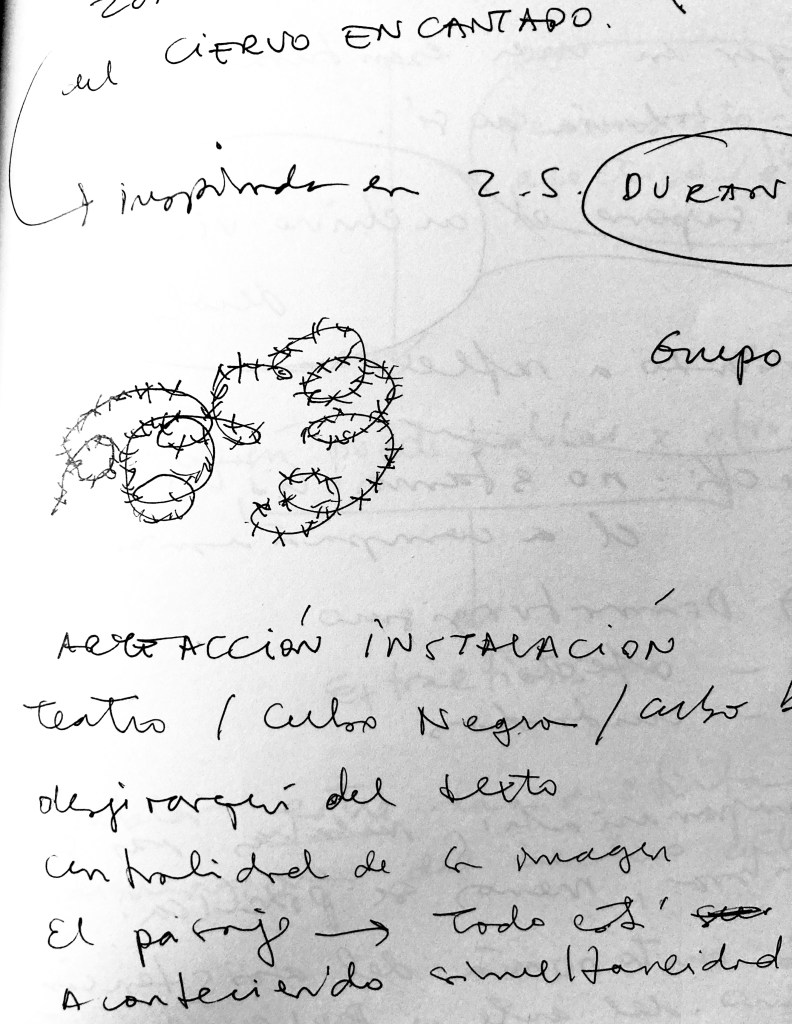 el CIERVO ENCANTADO.
inspirada en Z.S. DURAN
Grupo
ARTE ACCIÓN INSTALACIÓN
teatro / Cubo Negro / cubo b
desjirarqui del texto
centralidad de la imagen
El paisaje → todo está
Aconteciendo simultaneidad